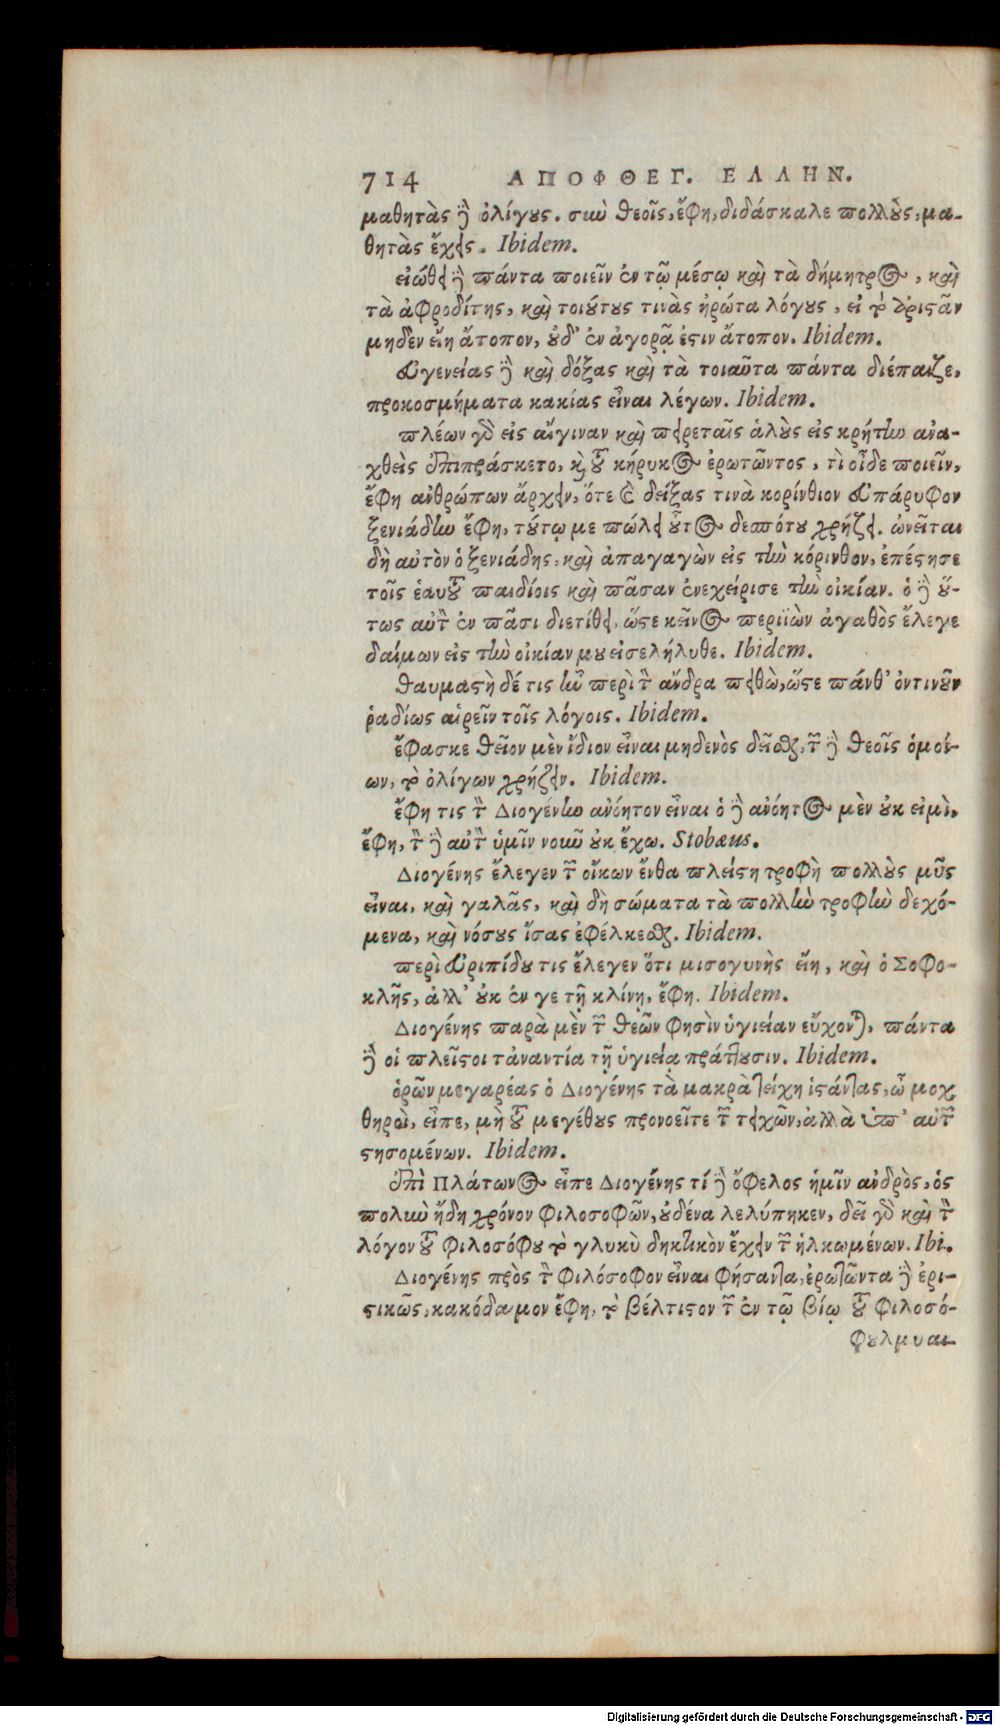 714 ΑΠΟΦΘΕΓ. ΕΛΛΗΝ.
μαθητὰς ἢ ὀλίγους. σὺν θεοῖς, ἔφη, διδάσκαλε πολλοὺς, μα-
θητὰς ἔχεις. Ibidem.
εἰώθει δὲ πάντα ποιεῖν ἐν τῷ μέσῳ καὶ τὰ δήμητρος, καὶ
τὰ ἀφροδίτης, καὶ τοιούτους τινὰς ἠρώτα λόγους, εἰ τὸ ἀριστᾶν
μηδὲν εἴη ἄτοπον, οὐδ’ ἐν ἀγορᾷ ἐστιν ἄτοπον. Ibidem.
εὐγενείας δὲ καὶ δόξας καὶ τὰ τοιαῦτα πάντα διέπαιζε,
προκοσμήματα κακίας εἶναι λέγων. Ibidem.
πλέων γὰρ εἰς αἴγιναν καὶ πειρεταῖς ἁλοὺς εἰς κρήτην ἀνα-
χθεὶς ἐπιπράσκετο, καὶ τοῦ κήρυκος ἐρωτῶντος, τὶ οἶδε ποιεῖν,
ἔφη ἀνθρώπων ἄρχειν, ὅτε καὶ δείξας τινὰ κορίνθιον εὐπάρυφον
ξενιάδην ἔφη, τούτῳ με πώλει οὗτος δεσπότου χρήζει. ὠνεῖται
δὴ αὐτὸν ὁ ξενιάδης, καὶ ἀπαγαγὼν εἰς τὴν κόρινθον, ἐπέστησε
τοῖς ἑαυτοῦ παιδίοις καὶ πᾶσαν ἐνεχείρισε τὴν οἰκίαν. ὁ δὲ οὕ-
τως αὐτὴν ἐν πᾶσι διετίθει, ὥστε κεῖνος περιϊὼν ἀγαθὸς ἔλεγε
δαίμων εἰς τὴν οἰκίαν μου εἰσελήλυθε. Ibidem.
θαυμαστὴ δέ τις ἦν περὶ τὸν ἄνδρα πειθὼ, ὥστε πάνθ’ ὁντινοῦν
ῥαδίως αἱρεῖν τοῖς λόγοις. Ibidem.
ἔφασκε θεῖον μὲν ἴδιον εἶναι μηδενὸς δεῖσθαι, τῶν δὲ θεοῖς ὁμοί-
ων, τὸ ὀλίγων χρήζειν. Ibidem.
ἔφη τις τὸν Διογένην ἀνόητον εἶναι ὁ δὲ ἀνόητος μὲν οὐκ εἰμὶ,
ἔφη, τὸν δὲ αὐτὸν ὑμῖν νοῦν οὐκ ἔχω. Stobaeus.
Διογένης ἔλεγεν τῶν οἴκων ἔνθα πλείστη τροφὴ πολλοὺς μῦς
εἶναι, καὶ γαλᾶς, καὶ δὴ σώματα τὰ πολλὴν τροφὴν δεχό-
μενα, καὶ νόσους ἴσας ἐφέλκεσθαι. Ibidem.
περὶ Εὐριπίδου τις ἔλεγεν ὅτι μισογυνὴς εἴη, καὶ ὁ Σοφο-
κλῆς, ἀλλ’ οὐκ ἐν γε τῇ κλίνῃ, ἔφη. Ibidem.
Διογένης παρὰ μὲν τῶν θεῶν φησὶν ὑγιείαν εὔχονται, πάντα
δὲ οἱ πλεῖστοι τἀναντία τῇ ὑγιείᾳ πράττουσιν. Ibidem.
ὁρῶν μεγαρέας ὁ Διογένης τὰ μακρὰ τείχη ἱστάντας, ὦ μοχ
θηροὶ, εἶπε, μὴ τοῦ μεγέθους προνοεῖτε τῶν τειχῶν, ἀλλὰ τῶν ἐπ’ αὐτῶν
στησομένων. Ibidem.
ἐπὶ Πλάτωνος εἶπε Διογένης τί δὲ ὄφελος ἡμῖν ἀνδρὸς, ὁς
πολὺν ἤδη χρόνον φιλοσοφῶν, οὐδένα λελύπηκεν, δεῖ γὰρ καὶ τὸν
λόγον τοῦ φιλοσόφου τὸ γλυκὺ δηκτικὸν ἔχειν τῶν ἡλκωμένων. Ibi.
Διογένης πρὸς τὸν φιλόσοφον εἶναι φήσαντα, ἐρωτῶντα δὲ ἐρι-
στικῶς, κακόδαιμον ἔφη, τὸ βέλτιστον τῶν ἐν τῷ βίῳ τοῦ φιλοσό-
φου λμυαι
Digitalisierung gefördert durch die Deutsche Forschungsgemeinschaft - DFG